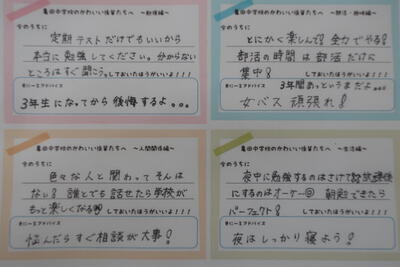 亀田中学校のかわいい後輩たちへ ～勉強編～
今のうちに
定期テストだけでもいいから
本当に勉強してください。分からない
ところはすぐ聞こう。しておいたほうがいいよ!!!
先に一言アドバイス
3年生になってから後悔するよ。。。
亀田中学校のかわいい後輩たちへ ～部活・趣味編～
今のうちに
とにかく楽しんで! 全力でやる!
部活の時間は部活だけに
集中! しておいたほうがいいよ!!!
3年間あっというまだよ...
女バス頑張れ!
亀田中学校のかわいい後輩たちへ ～人間関係編～
今のうちに
色々な人と関わってそんは
ない! 誰とでも話せたら学校が
もっと楽しくなる しておいたほうがいいよ!!!
悩んだらすぐ相談が大事!
亀田中学校のかわいい後輩たちへ ～生活編～
今のうちに
夜中に勉強するのはさけて
にするのはオーケー 朝勉できたら
パーフェクト! しておいたほうがいいよ!!!
夜はしっかり寝よう!